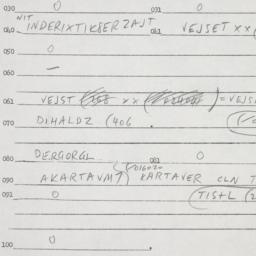 030 0 031 0
NIT
040 INDERIXTIKSERZAJT 041 VEJSET XX
050 0
060 —
061 VEJST XX = VEJS
070 DIHALDZ (406 .
080 DERGORGL 081 0
090 AKARTAVM7) KARTAVER CLN T
091 0 (TIS+L (2
100 0 .